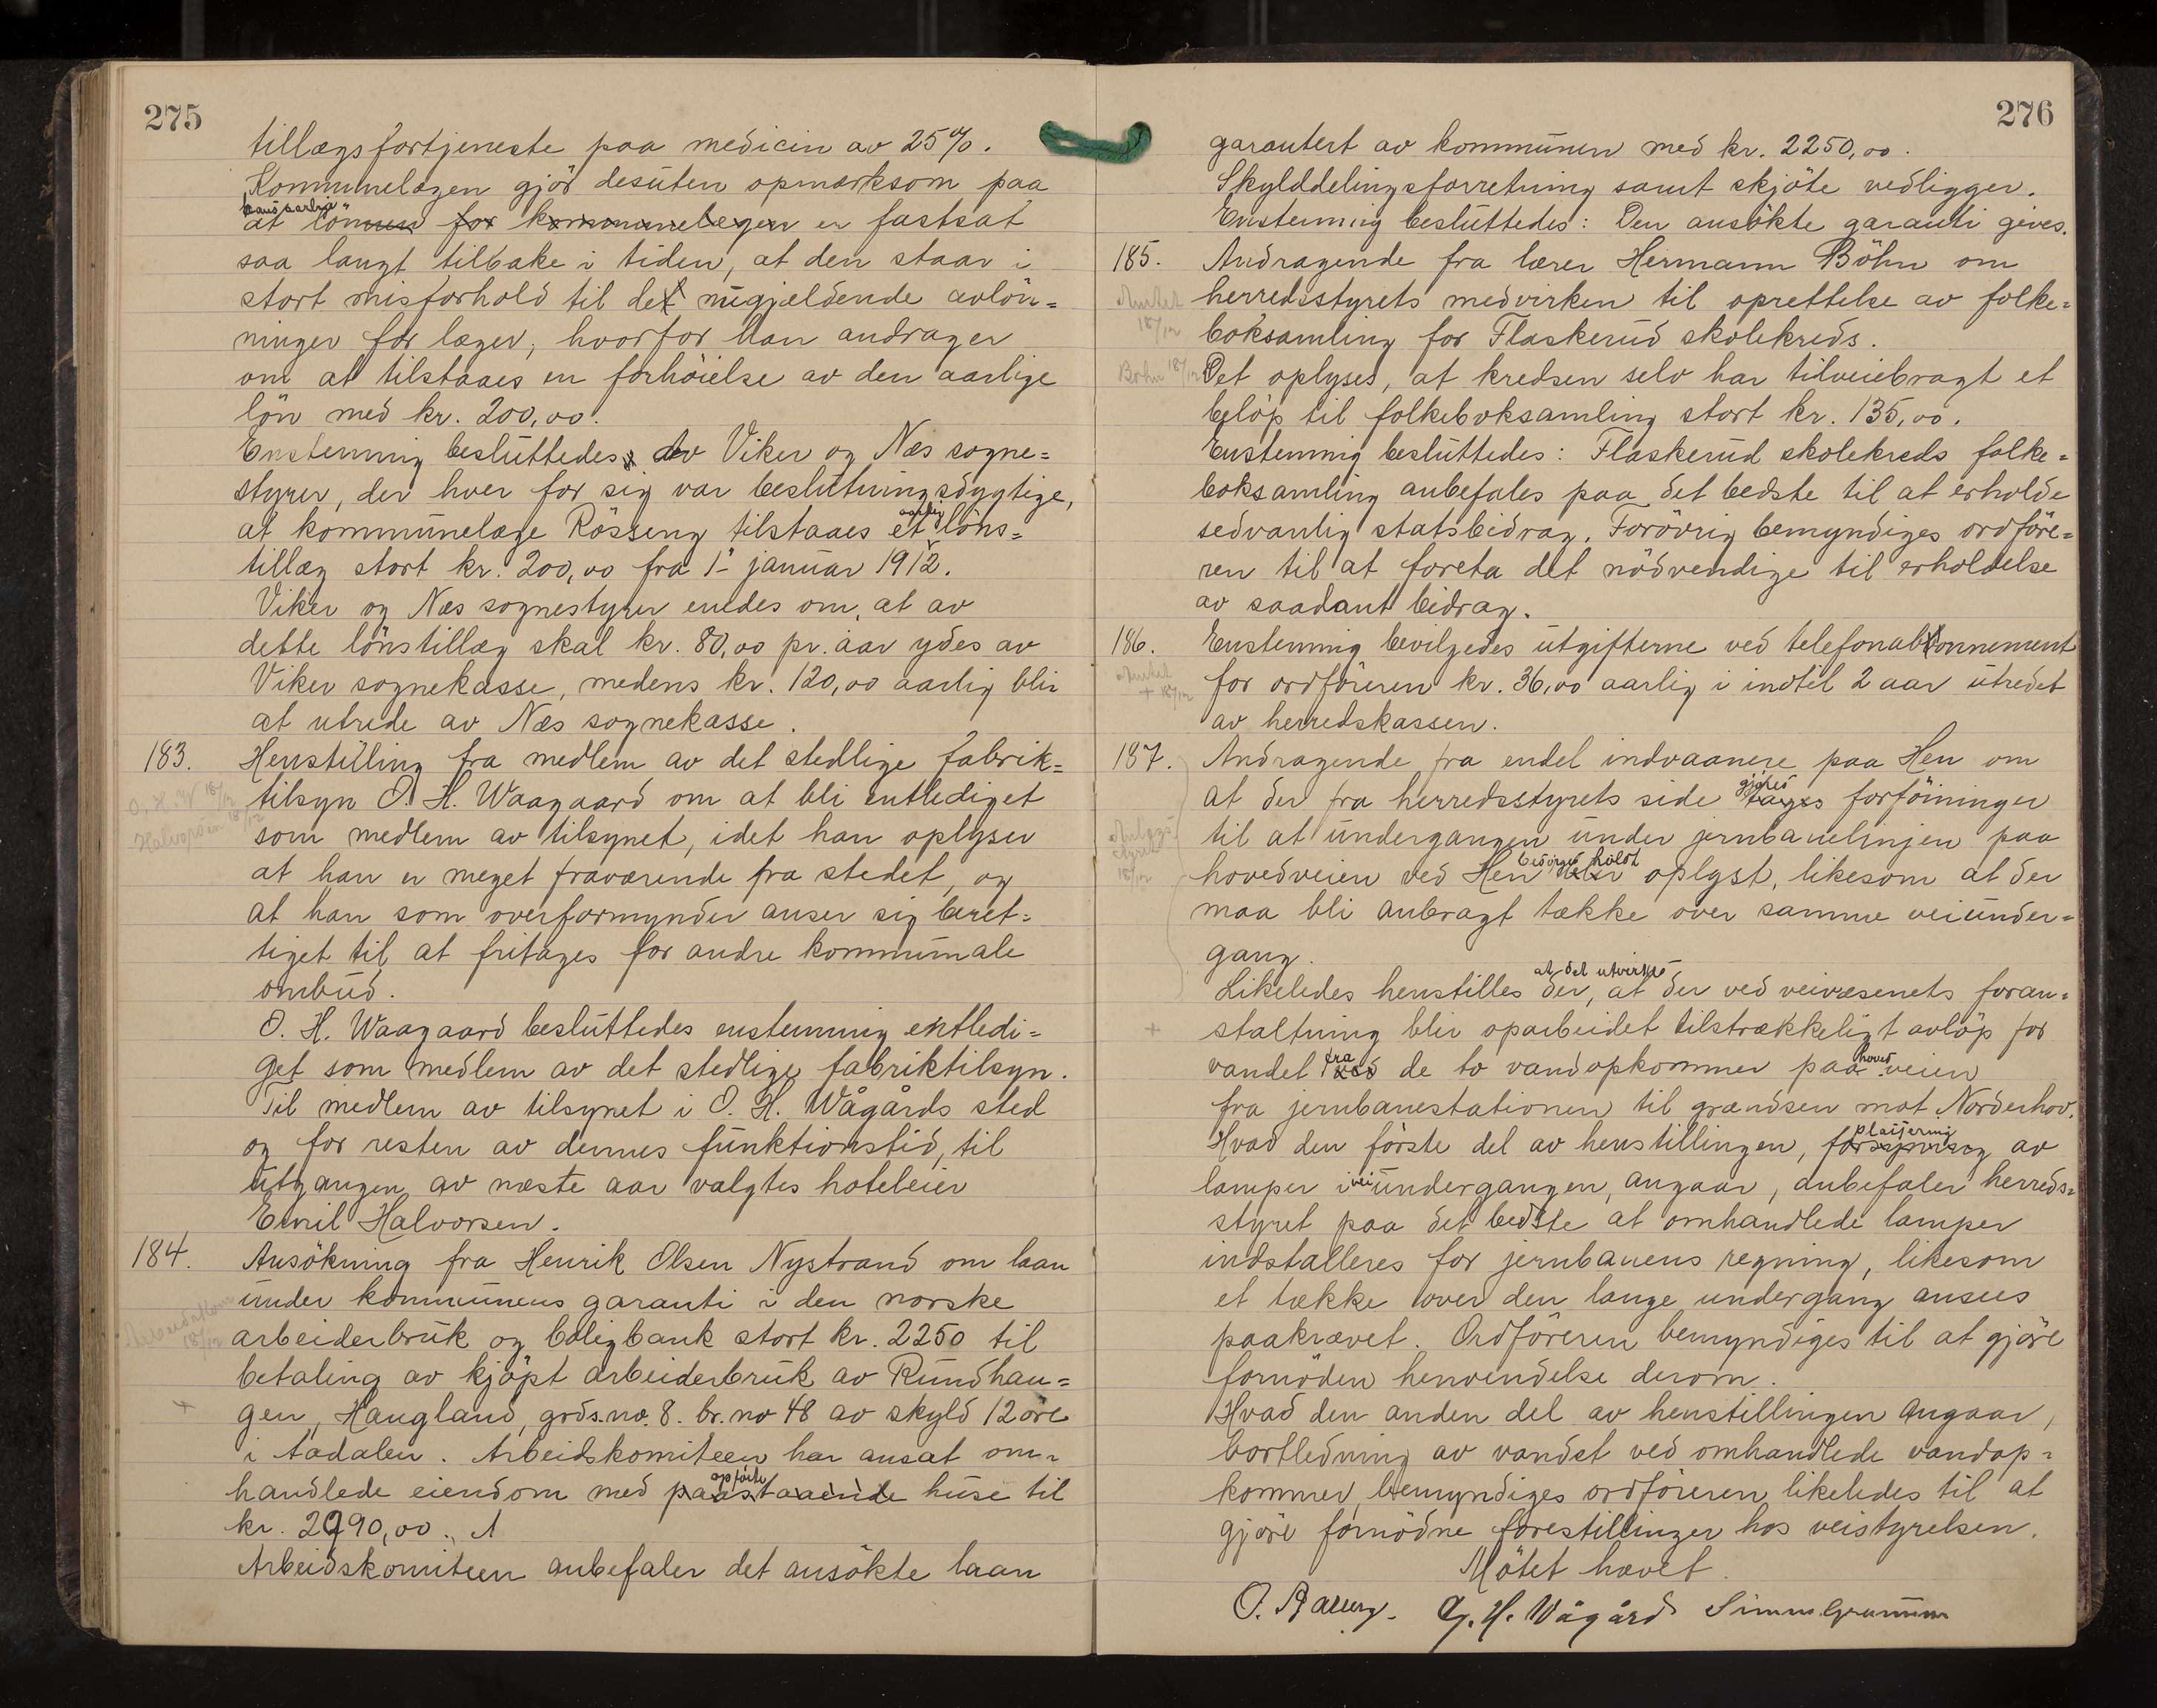 275
tillægsfortjeneste paa medicin av 25%.
Kommunelægen gjör desuten opmerksom paa
hans aarlige
at lönnen for kommunelegen er fastsat
saa langt tilbake i tiden, at den staar i
stort misforhold til det nugjældende avlön=
ninger for læger, hvorfor han andrager
om at tilstaaes en forhöielse av den aarlige
lön med kr. 200,00.
Enstemmig besluttedes av Viker og Næs sogne=
styrer, der hver for sig var beslutningsdygtige,
aarlig
at kommunelæge Rösseng tilstaaes et löns=
tillæg stort kr. 200,00 fra 1- januar 1912.
Viker og Næs sognestyrer enedes om, at av
dette lönstillæg skal kr. 80,00 pr. aar ydes av
Viker sognekasse, medens kr. 120,00 aarlig blir
at utrede av Næs sognekasse.
183. Henstilling fra medlem av det stedlige fabrik=
O. H. W 18/12
tilsyn O. H. Waagaard om at bli entlediget
Halvorsen 18/12
som medlem av tilsynet, idet han oplyser
at han er meget fraværende fra stedet, og
at han som overformynder anser sig beret=
tiget til at fritages for andre kommunale
ombud.
O. H. Waagaard besluttedes enstemmig entledi=
get som medlem av det stedlige fabriktilsyn.
Til medlem av tilsynet i O. H. Wågårds sted
og for resten av dennes funktionstid, til
utgangen av næste aar valgtes hoteleier
Emil Halvorsen.
184. Ansökning fra Henrik Olsen Nystrand om laan
under kommunens garanti i den norske
18/12
arbeiderbruk og boligbank stort kr. 2250 til
betaling av kjöpt arbeiderbruk av Rundhau=
+ gen, Haugland, grds.no. 8. br.no 48 av skyld 12 öre
i Aadalen. Arbeidskomiteen har ansat om=
opförte
handlede eiendom med paastaaende huse til
kr. 2990,00.
Arbeidskomiteen anbefaler det ansökte laan
276
garantert av kommunen med kr. 2250,00.
Skylddelingsforretning samt skjöte vedligger.
Enstemmig besluttedes: Den ansökte garanti gives.
185. Andragende fra lærer Hermann Böhn om
Amtet 18/12
herredsstyrets medvirken til oprettelse av folke=
boksamling for Flaskerud skolekreds.
Bøhn 18/12
Det oplyses, at kredsen selv har tilveiebragt et
belöp til folkeboksamling stort kr. 135,00.
Enstemmig besluttedes: Flaskerud skolekreds folke=
boksamling anbefales paa det bedste til at erholde
sedvanlig statsbidrag. Forövrig bemyndiges ordföre=
ren til at foreta det nödvendige til erholdelse
av saadant bidrag.
186. Enstemmig bevilgedes utgifterne ved telefonabonnement
Amtet + 18/12
for ordföreren kr. 36,00 aarlig i indtil 2 aar utredet
av herredskassen.
187. Andragende fra endel indvaanere paa Hen om
gjöres
at der fra herredsstyrets side tages forföininger
til at undergangen under jernbanelinjen paa
18/12
besörges holdt
hovedveien ved Hen blir oplyst, likesom at der
maa bli anbragt tække over samme veiunder=
gang.
at det utvirkes
Likeledes henstilles der, at der ved veivæsenets foran=
+ staltning blir oparbeidet tilstrækkeligt avlöp for
fra hoved
vandet ved de to vandopkommer paa veien
fra jernbanestationen til grændsen mot Norderhov.
plasering
Hvad den förste del av henstillingen, forsyning av
vei
lamper i undergangen, angaar, anbefaler herreds=
styret paa det bedste at omhandlede lamper
indstalleres for jernbanens regning, likesom
et tække over den lange undergang ansees
paakrævet. Ordföreren bemyndiges til at gjöre
fornöden henvendelse derom.
Hvad den anden del av henstillingen angaar,
bortledning av vandet ved omhandlede vandop=
kommer, bemyndiges ordföreren likeledes til at
gjöre fornödne forestillinger hos veistyrelsen.
Mötet hævet.
G. H. Wågård